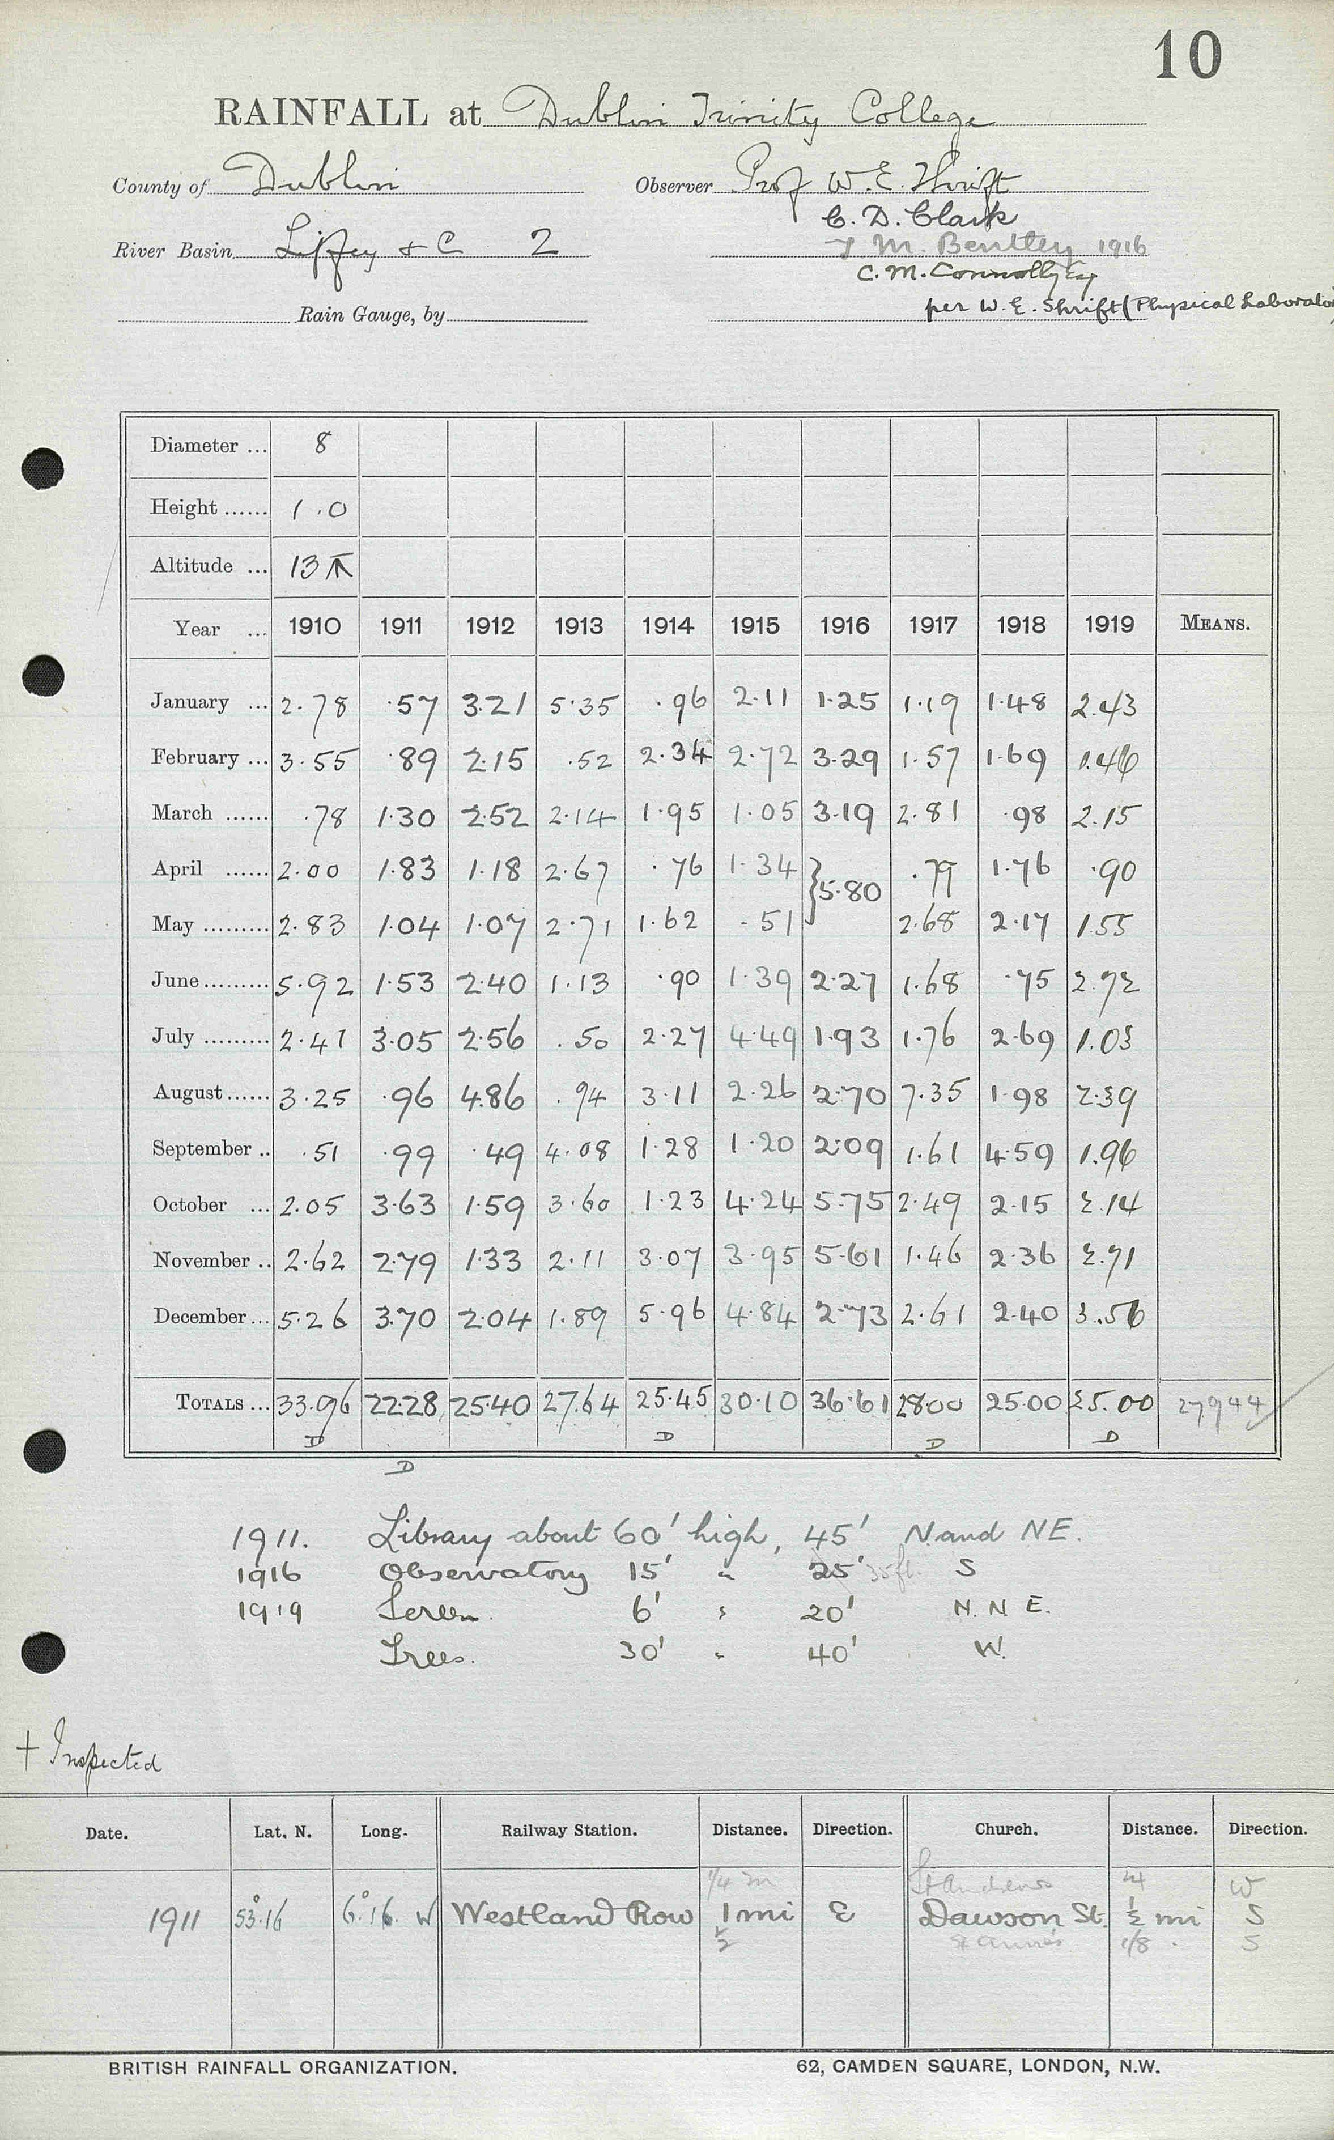 10
RAINFALL at Dublin Trinity College
County of Dublin Observer Prof W. E. Thrift
C. D. Clark
River Basin Liffey & C 2 J M. Bentley 1916
C. M. Connolly Esq
Rain Gauge, by per W. E. Shrift (Physical Laborator
Diameter ... 8
Height ...... 1.0
Altitude ... 13
Year ... 1910 1911 1912 1913 1914 1915 1916 1917 1918 1919 MEANS.
January ... 2.78 .57 3.21 5.35 .96 2.11 1.25 1.19 1.48 2.43
February ... 3.55 .89 2.15 .52 2.34 2.72 3.29 1.57 1.69 1.46
March ...... .78 1.30 2.52 2.14 1.95 1.05 3.19 2.81 .98 2.15
April ...... 2.00 1.83 1.18 2.67 .76 1.34 } 5.80 .79 1.76 .90
May ......... 2.83 1.04 1.07 2.71 1.62 .51 2.68 2.17 1.55
June ......... 5.92 1.53 2.40 1.13 .90 1.39 2.27 1.68 .75 2.72
July ......... 2.41 3.05 2.56 .50 2.27 4.49 1.93 1.76 2.69 1.03
August ...... 3.25 .96 4.86 .94 3.11 2.26 2.70 7.35 1.98 2.39
September .. .51 .99 .49 4.08 1.28 1.20 2.09 1.61 4.59 1.96
October ... 2.05 3.63 1.59 3.60 1.23 4.24 5.75 2.49 2.15 2.14
November .. 2.62 2.79 1.33 2.11 3.07 3.95 5.61 1.46 2.36 2.71
December ... 5.26 3.70 2.04 1.89 5.96 4.84 2.73 2.61 2.40 3.56
TOTALS ... 33.96 22.28 25.40 27.64 25.45 30.10 36.61 28.00 25.00 25.00 27944
D D D D
D
1911. Library about 60' high, 45' N and NE.
1916 Observatory 15' " 25' 35ft. S
1919 Screen 6' " 20' N. N E.
Trees. 30' " 40' W.
† Inspected
Date. Lat. N. Long. Railway Station. Distance. Direction. Church. Distance. Direction.
1/4 m St Andrews 1/4 W
1911 53°.16 6°.16. W Westland Row 1 mi E Dawson St. 1/2 mi S
1/2 St Anne's 1/8 . S
BRITISH RAINFALL ORGANIZATION. 62, CAMDEN SQUARE, LONDON, N.W.